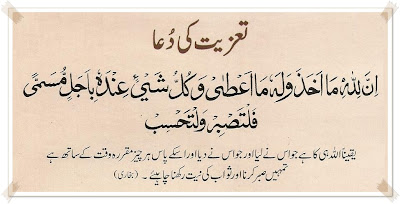 تعزیت کی دُعا
اِنَّ لِلّٰهِ مَا اَخَذَ وَلَهٗ مَا اَعْطٰى وَكُلُّ شَيْئٍ عِنْدَهٗ بِاَجَلٍ مُّسَمًّى
فَلْتَصْبِرْ وَلْتَحْسِبْ
یقیناً اللہ ہی کا ہے جو اس نے لیا اور جو اس نے دیا اور اسکے پاس ہر چیز مقررہ وقت کے ساتھ ہے
تمہیں صبر کرنا اور ثواب کی نیت رکھنا چاہیئے ۔ (بخاری)